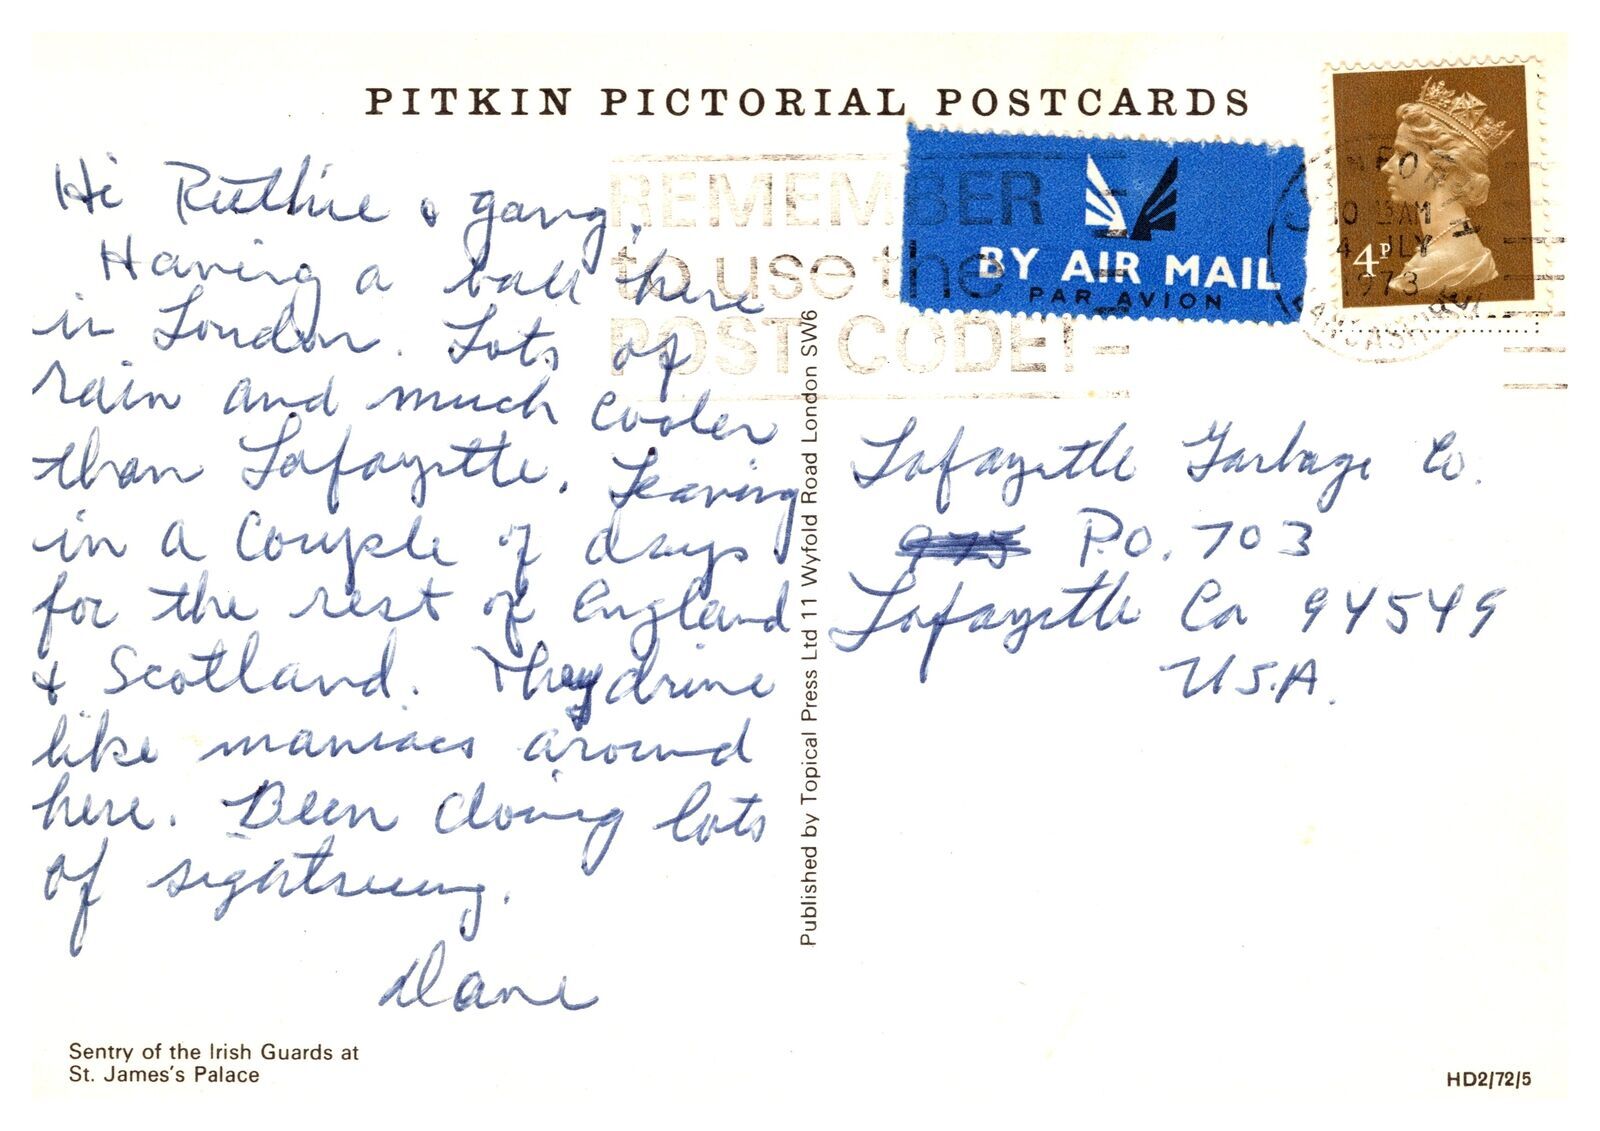 PITKIN PICTORIAL POSTCARDS
Hi Ruthie & gang,
Having a ball here
in London. Lots of
rain and much cooler
than Lafayette. Leaving
in a couple of days
for the rest of England
& Scotland. They drive
like maniacs around
here. Been doing lots
of sightseeing.
Dane
Sentry of the Irish Guards at
St. James's Palace
Published by Topical Press Ltd 11 Wyfold Road London SW6
REMEMBER
to use the
POST CODE!
BY AIR MAIL
PAR AVION
4P
10 15 AM
4 JLY
1973
Lafayette Garbage Co.
P.O. 703
Lafayette Ca 94549
U.S.A.
HD2/72/5